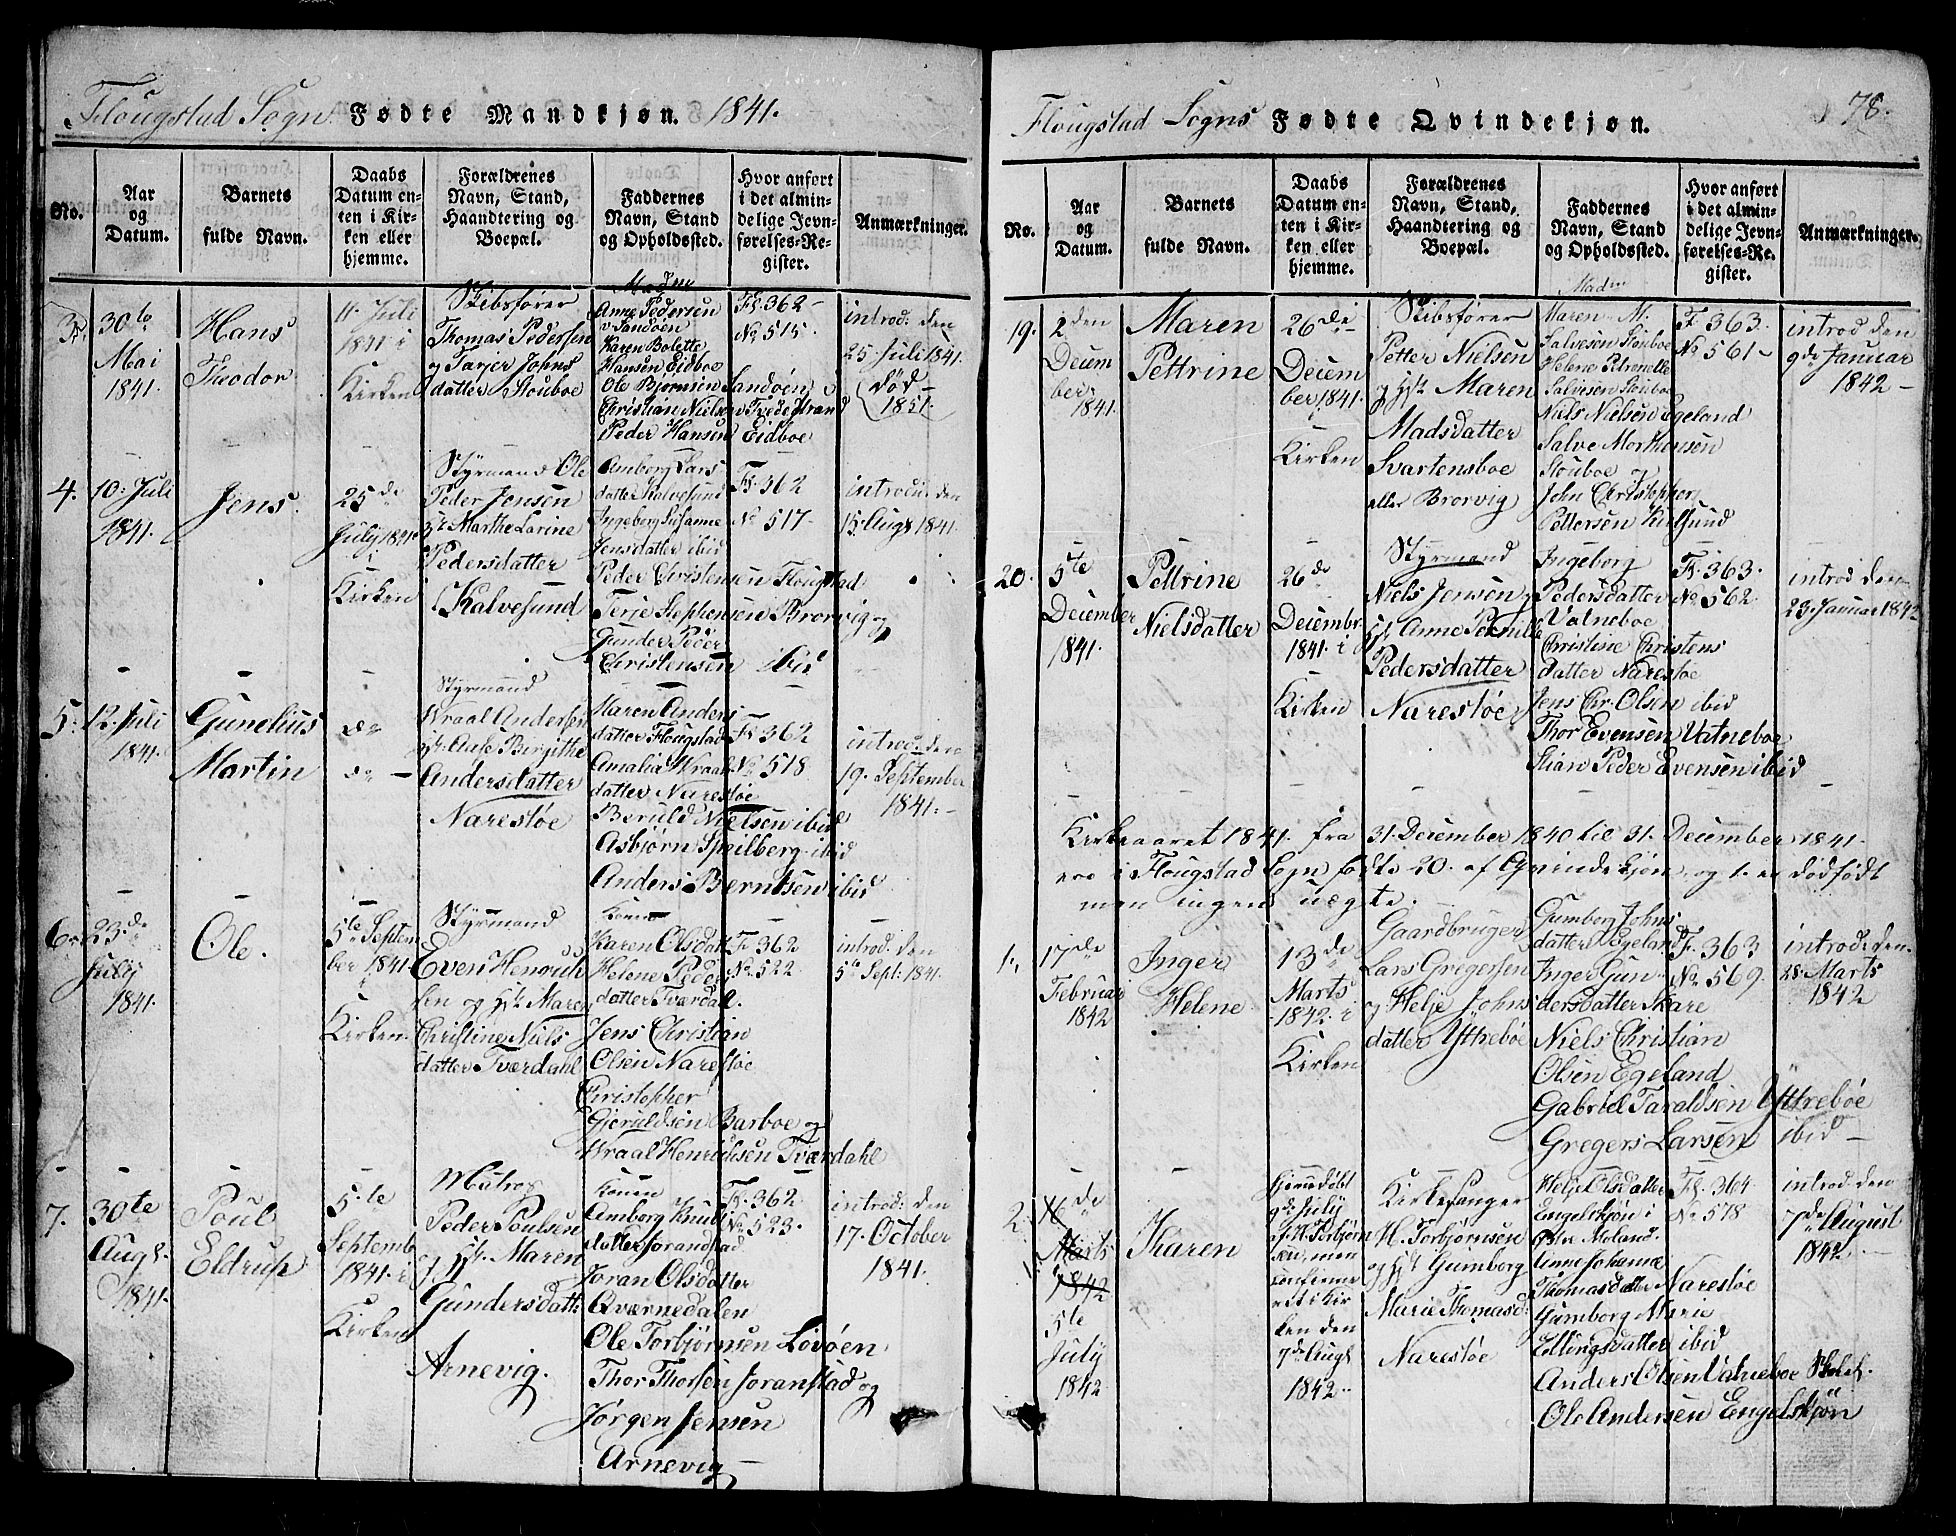 Flougstad Sogn. Fødte Mandkjøn. 1841.
No.
Aar
og
Datum.
Barnets
fulde Navn.
Daabs
Datum en-
ten i Kir-
ken eller
hjemme.
Forældrenes
Navn, Stand,
Haandtering og
Boepæl.
Faddernes
Navn, Stand
og Opholdssted.
Hvor anført
i det almin-
delige Jevn-
førelses-Re-
gister.
Anmærkninger.
3.
30te
Mai
1841.
Hans
Theodor
11. Juli
1841 i
Kirken
Skibsfører
Thomas Pedersen
og Tarjer Johns
datter Stouboe
Anne Pedersen
Sandöen
Karen Bolette
Hansen Eidboe
Ole Bjornsen Sandöen
Christian Nielsen Tvedestrand
Peder Hansen Eidboe
Fl. 362
No 515.
introd: den
25. Juli 1841.
(død
1851.
4.
10. Juli
1841.
Jens.
25de
July 1841
i
Kirken
Styrmand Ole
Peder Jensen
Marthe Larine
Pedersdatter
Kalvesund
Amborg Lars
datter Kalvesund
Ingeborg Susanne
Jensdatter ibid
Peder Christensen Flougstad
Terje Stephensen Brorvig og
Gunder Peder
Christensen ibid
Fl. 362
No 517.
introd: den
15. Augs 1841.
5.
12. Juli
1841.
Gunelius
Martin
do
do
Styrmand
Wraal Andersen
Aase Birgithe
Andersdatter
Narestöe
Maren Anders
datter Flougstad
Amalia Wraals
datter Narestöe
Beruld Nielsen ibid
Asbjørn Speilberg ibid
Anders Berntsen ibid
Fl. 362
No 518
introd: den
19. September
1841.
6.
23de
July
1841.
Ole.
5te Septem
ber 1841
i
Kirken.
Styrmand
Even Henrich
sen og Hst Maren
Christine Niels
datter Tværdahl
Konen
Karen Olsdatt
Helene Peders
datter Tværdal.
Jens Christian
Olsen Narestöe
Christopher
Gjeruldsen Barboe og
Wraal Henrichsen Tværdahl
Fl. 362
No. 522
introd: den
5te Sept: 1841.
7.
30te
Augs.
1841.
Poul
Eldrup
5te
Septemb
1841 i
Kirken
Matros
Peder Poulsen
og Hst. Maren
Gundersdatt:
Arnevig.
Konen
Amborg Knuds
datter Joranstad
Joran Olsdatter
Qværnedalen
Ole Torbjørnsen Lovöen
Thor Thorsen Joranstad og
Jørgen Jensen
Arnevig
Fl. 362
No. 523.
introd: den
17. October
1841.
Flougstad Sogns Fødte Qvindekjøn.
78.
No.
Aar
og
Datum.
Barnets
fulde Navn.
Daabs
Datum en-
ten i Kir-
ken eller
hjemme.
Forældrenes
Navn, Stand,
Haandtering og
Boepæl.
Faddernes
Navn, Stand
og Opholdssted.
Hvor anført
i det almin-
delige Jevn-
førelses-Re-
gister.
Anmærkninger.
19.
2den
Decem
ber
1841.
Maren
Pettrine
26de
Decem
ber 1841.
i
Kirken
Skibsfører
Petter Nielsen
og Hst Maren
Madsdatter
Svartensboe
eller Brorvig
Maren M.
Salvesen Stouboe
Helene Petronelle
Salvesen Stouboe
Niels Nielsen Egeland
Salve Morthensen
Stouboe og
John Christopher
Pettersen Kilsund
F. 363.
No 561
introd den
9de Januar
1842
20.
5te
December
1841.
Pettrine
Nielsdatter
26de
Decembr.
1841. i
Kirken
Styrmand
Niels Jensen og
Hst Anne Pernille
Pedersdatter
Narestöe
Ingeborg
Pedersdatter
Vatneboe
Christine Christens
datter Narestöe
Jens Chr. Olsen ibid
Thor Evensen Vatneboe
Stian Peder Evensen ibid
Fl. 363.
No 562.
introd den
23 Januar 1842
Kirkeaaret 1841. fra 31. December 1840 til 31. December 1841.
ere i Flougstad Sogn fødte 20. af Qvindekjön, og 1. er dödfödt
men ingen uægte.
1.
17de
Februar
1842
Inger
Helene
13de
Marts
1842. i
Kirken
Gaardbruger
Lars Gregersen
og Helje Johns
datter Yttreböe
Gumborg Johns
datter Egeland
Inger Gun-
dersdatter Skare
Niels Christian
Olsen Egeland
Gabriel Taraldsen Yttrebøe
Gregers Larsen ibid
F. 363
No. 569.
introd: den.
28. Marts
1842
2.
16de
Marts
1842
5te
July
1842
Karen
hjemmedöbt
9de July
af H. Torbjörn
sen, men
confirme
ret i Kir
ken den
7de Augs
1842
Kirkesanger
H. Torbjörnsen
og Hst Gumborg
Marie Thomasd:
Narestöe
Helje Olsdatter
Engelskjön i
Moland.
Anne Johanne
Thomasdatter Narestöe
Gumborg Marie
Ellingsdatter ibid
Anders Olsen Vatneboe Skolel.
Ole Andersen Engelskjön
Fl. 364.
No 578
introd den
7de August
1842.